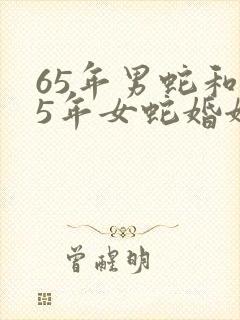 65年男蛇和
5年女蛇婚姻
曾醒明